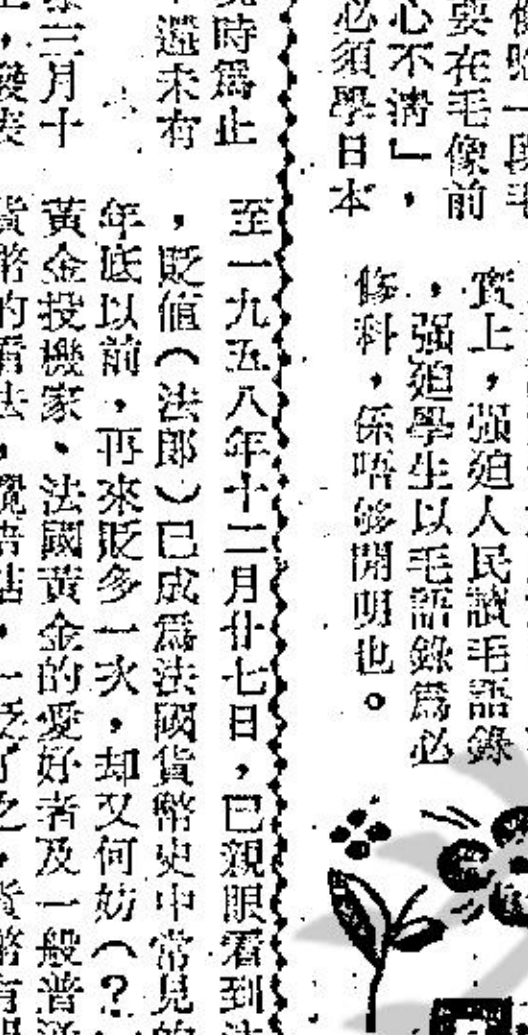 一段毛
要在毛像前
心不淸﹂，
必須學日本
實上，强廹人民讀毛語錄
，强廹學生以毛語錄爲必
修科，係唔够開明也。
時爲止
還未有
三月十
發表
至一九五八年十二月廿七日，已親眼看到法
，貶值（法郎）已成爲法國貨幣史中常見的
年底以前，再來貶多一次，却又何妨（？
黃金投機家、法國黃金的愛好者及一般普通
貨幣的看法，